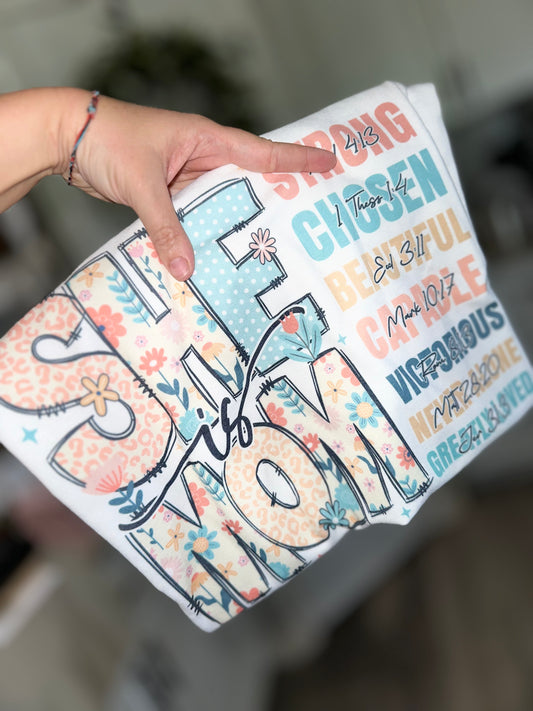 SHE
is
MOM
STRONG
4:13
CHOSEN
1 Thess 1:4
BEAUTIFUL
Ecl 3:11
CAPABLE
Mark 10:17
VICTORIOUS
Matt 28:20
GREATLY LOVED